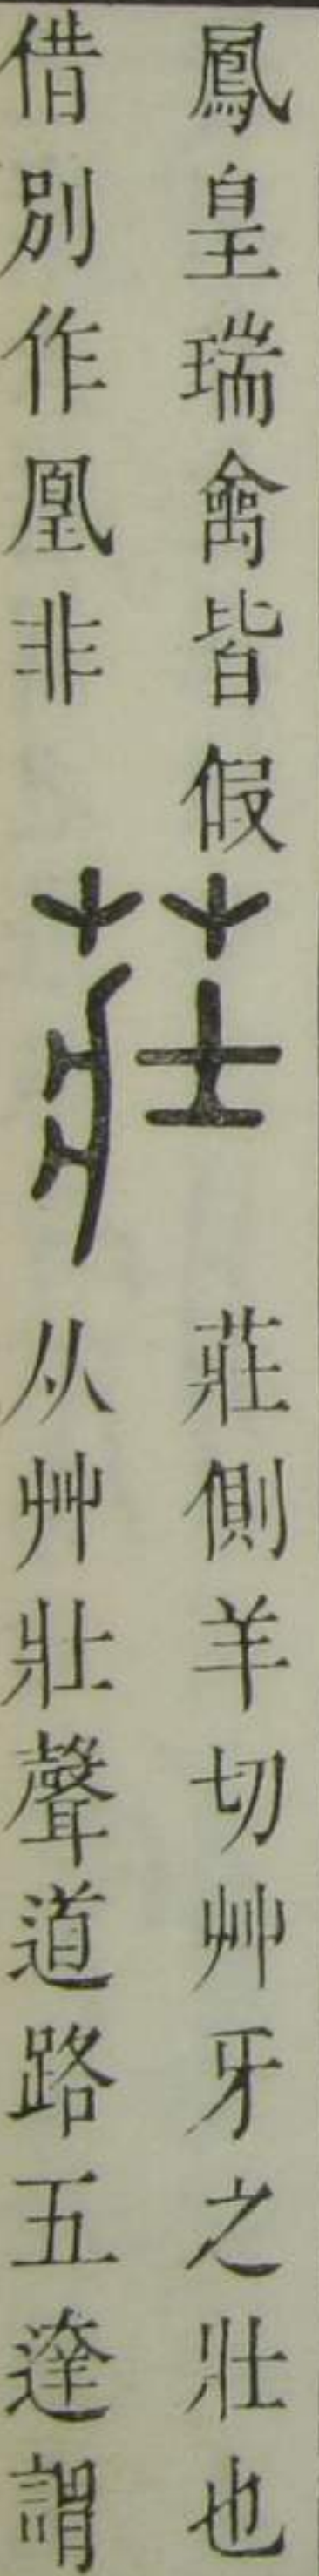 鳳皇瑞禽皆假
借別作凰非
莊
莊側羊切艸牙之壯也
从艸壯聲道路五達謂